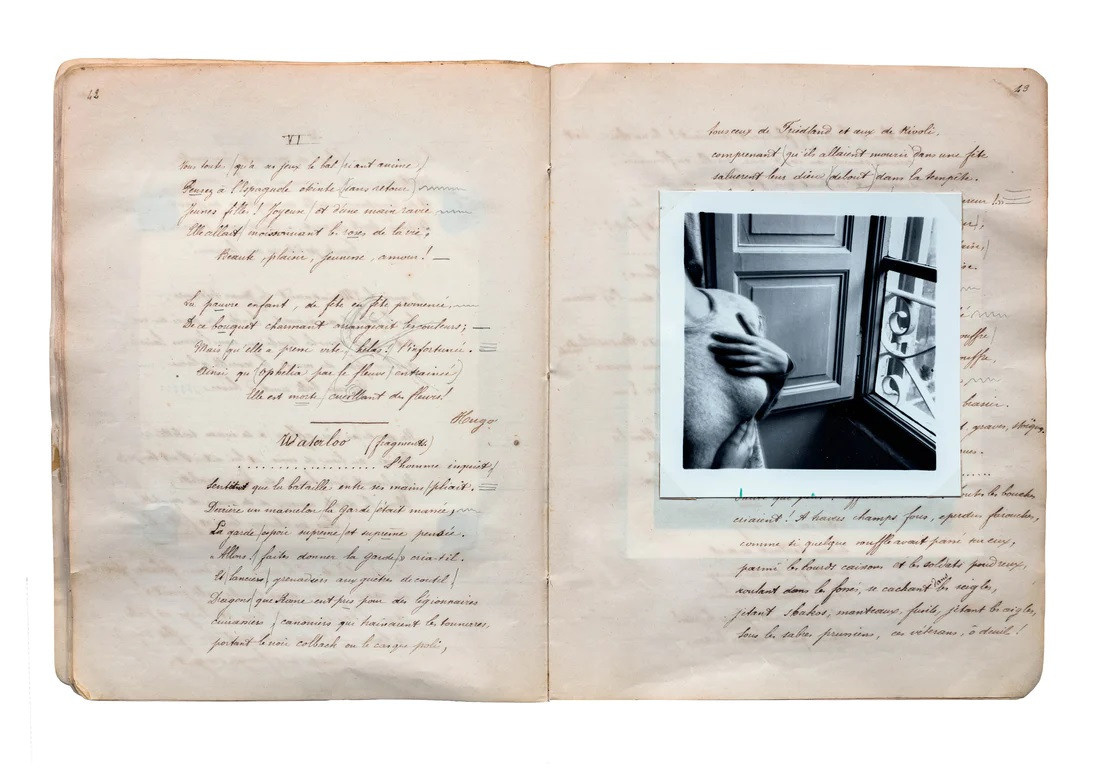 42
VI
Vous toutes (qu'à ses jeux le bal (riant anime)
Pensez à l'espagnole éteinte (sans retour)
Jeunes filles ! Joyeuse (et d'une main ravie
Elle allait (moissonnant les roses de la vie ;
Beauté, plaisir, jeunesse, amour ! —
La pauvre enfant, de fête en fête promenée,
De ce bouquet charmant arrangeait les couleurs ; —
Mais qu'elle a passé vite, hélas ! l'infortunée.
Ainsi qu' (Ophélia par le fleuve (entraînée)
Elle est morte (cueillant des fleurs !
Hugo
Waterloo (fragments)
.................. L'homme inquiet,
Sentant que la bataille entre ses mains (pliait.
Derrière un mamelon la garde (était massée,
La garde (espoir suprême (et suprême pensée.
« Allons ! (faites donner la garde ( » cria-t-il.
Et (lanciers (grenadiers aux guêtres de coutil (
Dragons (que Rome eut pris pour des légionnaires
Cuirassiers, (canonniers qui traînaient les tonnerres,
portant le noir colback ou le casque poli,
43
tous ceux de Friedland et ceux de Rivoli,
comprenant (qu'ils allaient mourir (dans une fête
saluèrent leur dieu (debout (dans la tempête.
brasier.
et graves,
toutes les bouches
criaient ! À travers champs, fous, éperdus, farouches,
comme si quelque souffle avait passé sur eux,
parmi les lourds caissons et les soldats poudreux,
roulant dans les fossés, se cachant dans les seigles,
jetant shakos, manteaux, fusils, jetant les aigles,
sous les sabres prussiens, ces vétérans, ô deuil !